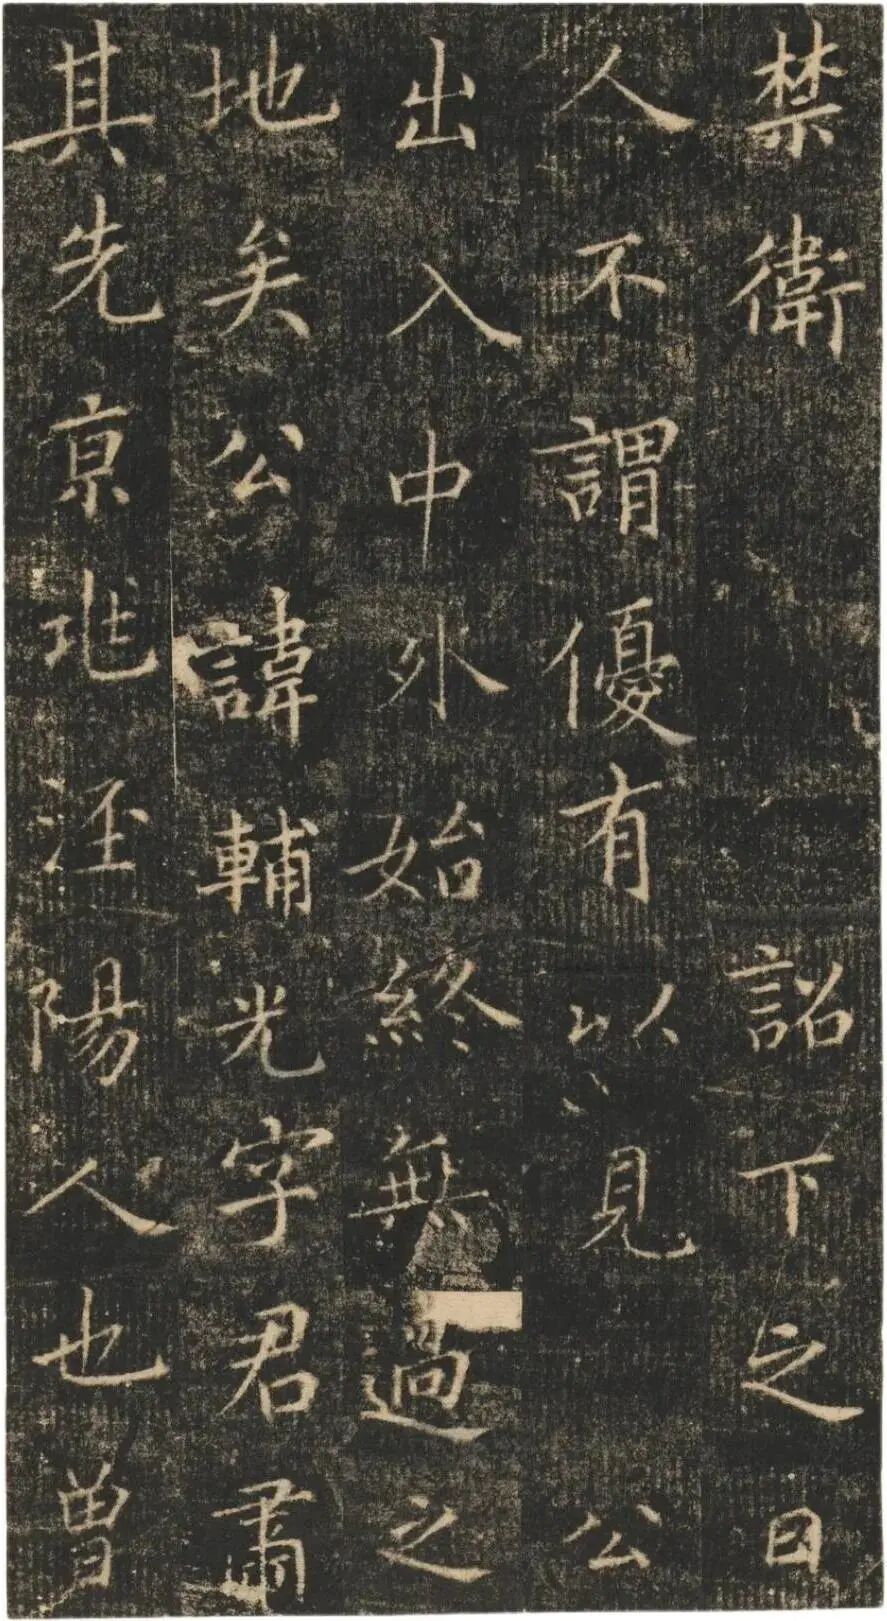 禁衛詔下之日
人不謂優有以見公
出入中外始終無過之
地矣公諱輔光字君肅
其先亰兆涇陽人也曾